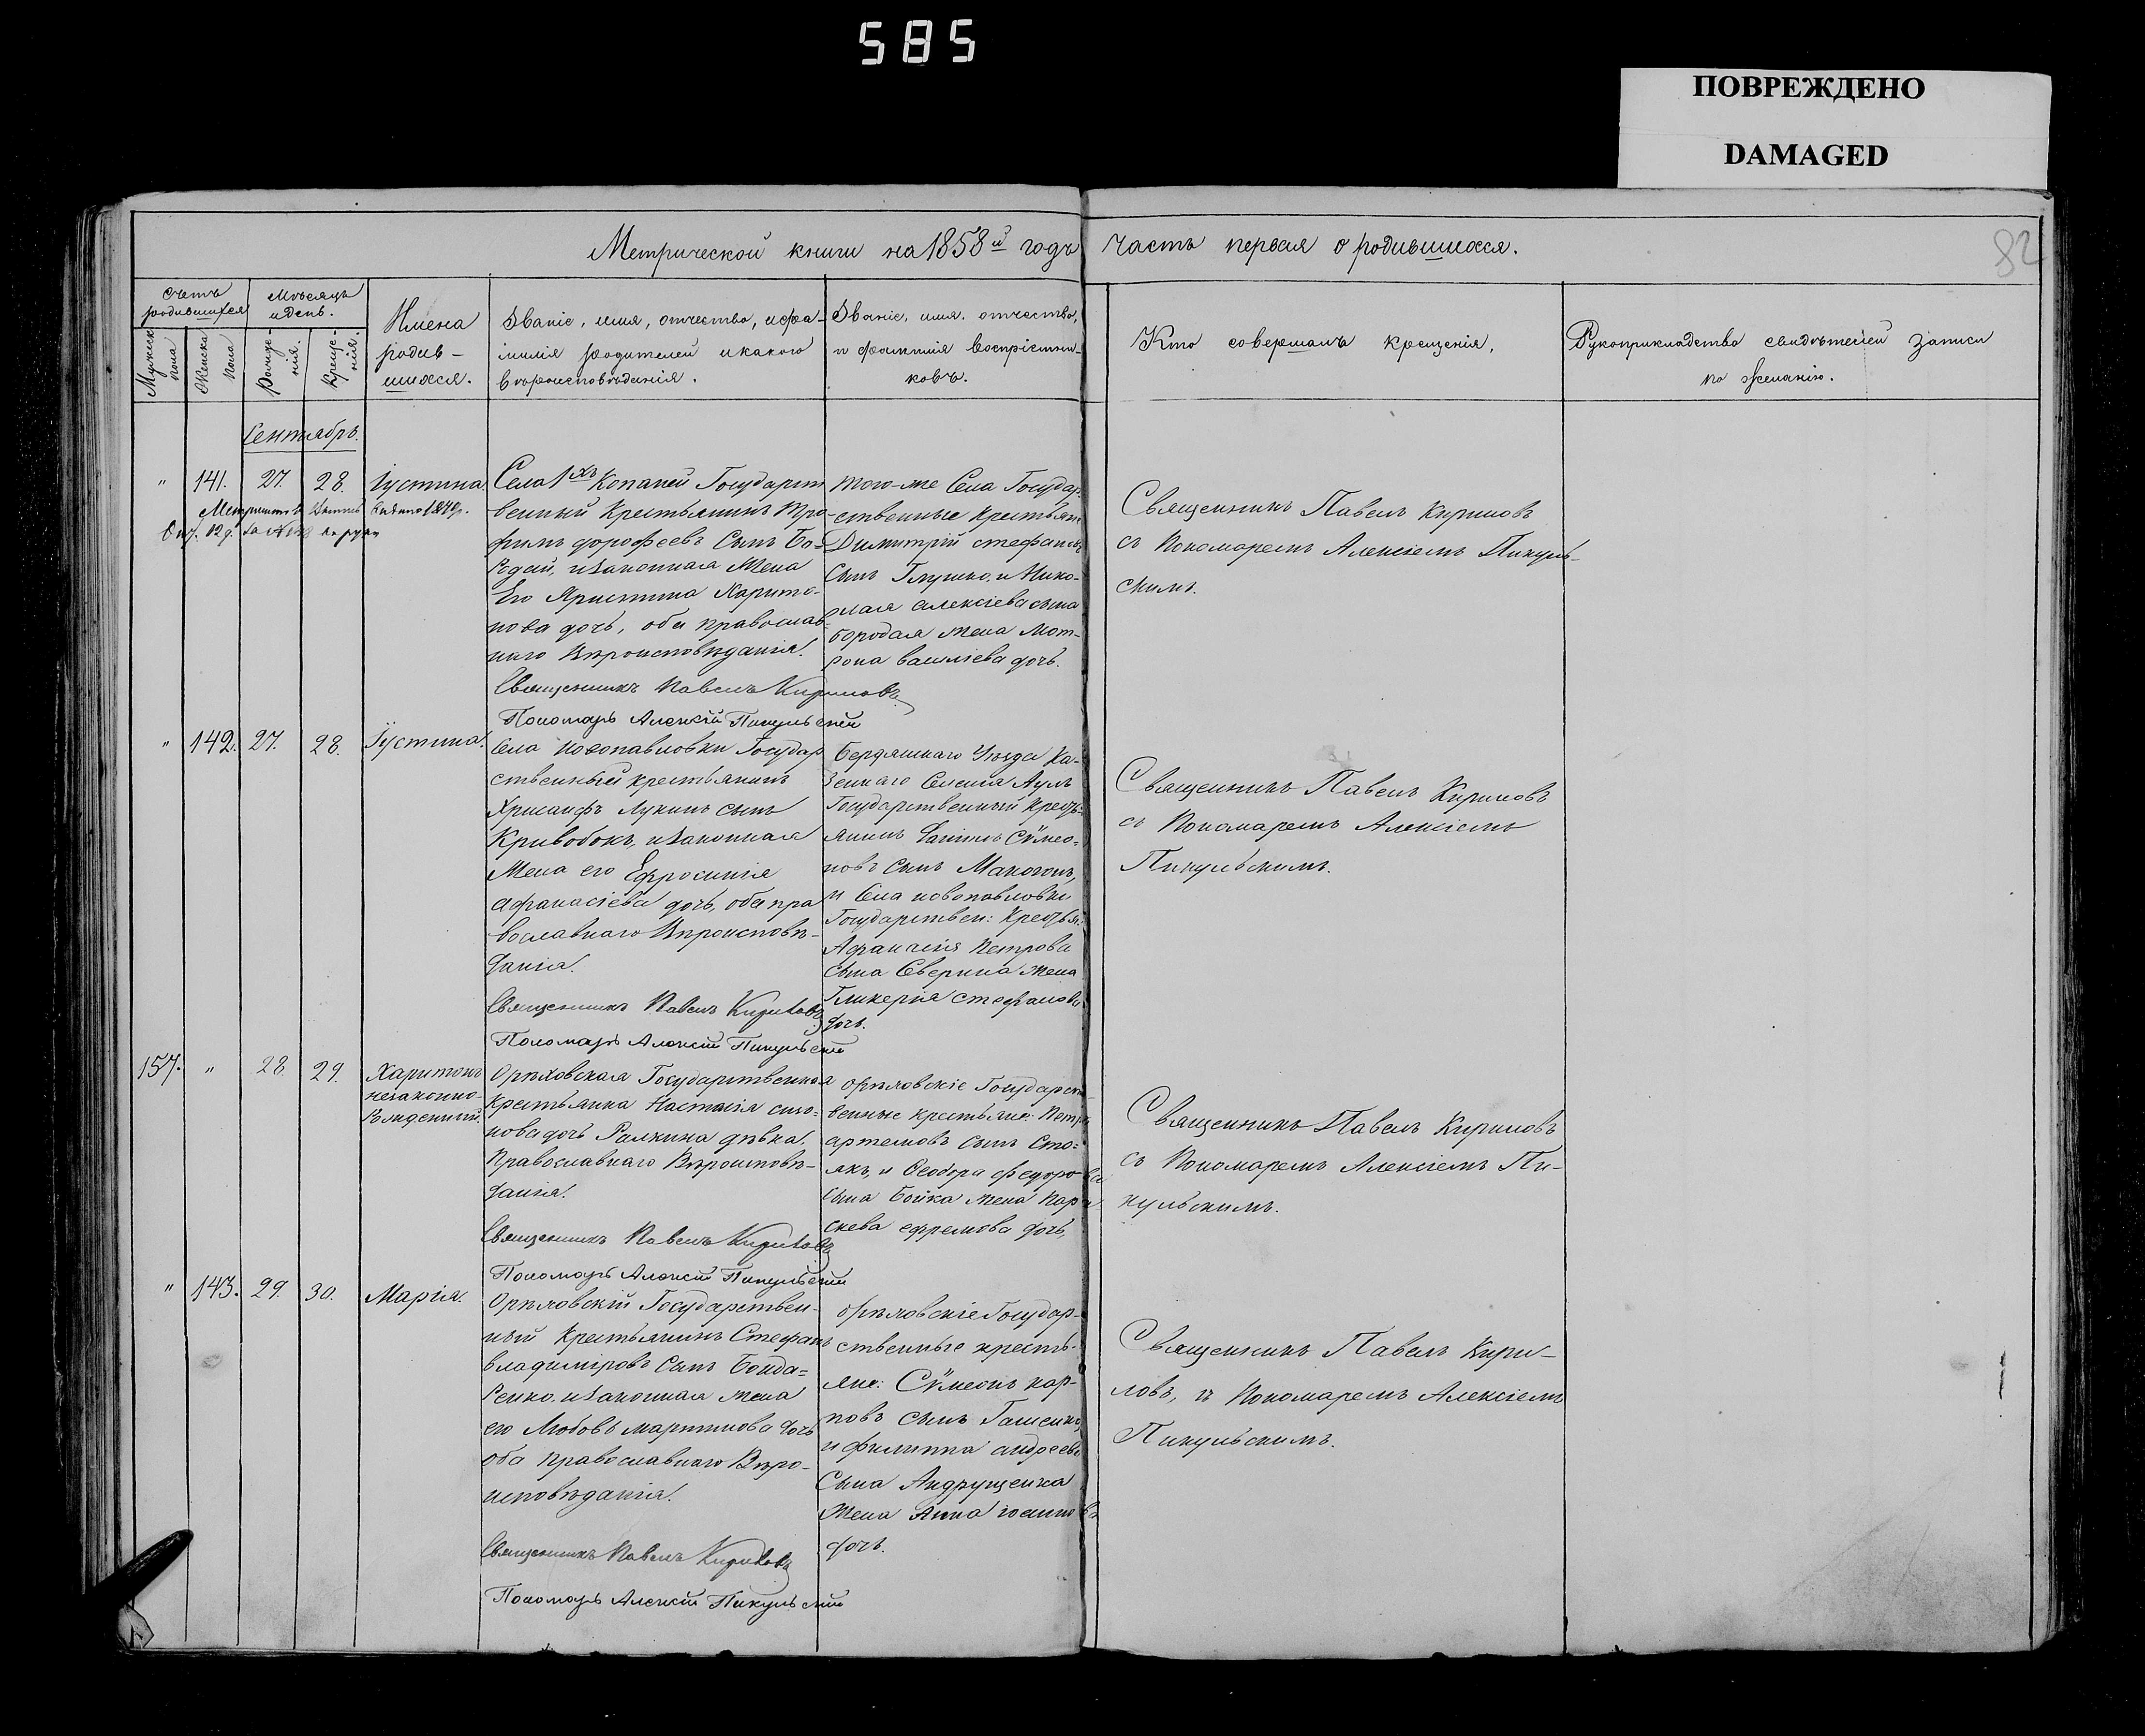 585
ПОВРЕЖДЕНО
DAMAGED
82
Метрической книги на 1858й годъ часть первая о родившихся.
Счетъ родившихся
Мѣсяцъ и день.
Мужеска пола
Женска пола
Рожде-
нія.
Креще-
нія.
Имена
родив-
шихся.
Званіе, имя, отчество, и фа-
милія родителей и какого
вѣроисповѣданія.
Званіе, имя, отчество,
и фамилія воспріемни-
ковъ.
Кто совершалъ крещенія.
Рукоприкладство свидѣтелей записи
по желанію.
Сентябрь.
" 141. 27. 28. Іустина.
Села 1хъ Копаней Государст
венный Крестьянинъ Тро-
фимъ дорофеевъ Сынъ Бо-
родай, и Законная Жена
Его Христина Харито-
нова дочь, оба православ-
наго Вѣроисповѣданія.
Священникъ Павелъ Кириловъ
Пономарь Алексій Пикульскій
того-же Села Государ-
ственные Крестьяне
Димитрій стефановъ
Сынъ Глушко, и Нико-
лая алексіева сына
бородая жена Мот-
рона василіева дочь.
Священникъ Павелъ Кириловъ
съ Пономаремъ Алексіемъ Пикуль-
скимъ.
" 142. 27. 28. Іустина.
Села новопавловки Государ
ственный крестьянинъ
Хрисанфъ Лукинъ сынъ
Кривобокъ, и Законная
Жена его Ефросинія
афанасіева дочь, оба пра
вославнаго Вѣроисповѣ-
данія.
Священникъ Павелъ Кириловъ
Пономарь Алексій Пикульскій
Бердянскаго Уѣзда Ка-
зеннаго Селенія Аулъ
Государственный Кресть-
янинъ Даніилъ Сѵмео-
новъ сынъ Макогонъ,
и Села новопавловки
Государствен: Крестья:
Афанасія Петрова
сына Сверина жена
Гликерія стефанова
дочь.
Священникъ Павелъ Кириловъ
съ Пономаремъ Алексіемъ
Пикульскимъ.
157. " 28. 29. Харитонъ
незаконно-
рожденный.
Орѣховская Государственная
крестьянка Настасія
нова дочь Ралкина дѣвка,
Православнаго Вѣроисповѣ-
данія.
Священникъ Павелъ Кириловъ
Пономарь Алексій Пикульскій
орѣховскіе Государст-
венные крестьяне: Петръ
артемовъ сынъ Сто-
якъ, и Ѳеодора федорова
сына Бойка жена Пара
скева ефремова дочь,
Священникъ Павелъ Кириловъ
съ Пономаремъ Алексіемъ Пи-
кульскимъ.
" 143. 29. 30. Марія.
Орѣховскій Государствен-
ный Крестьянинъ Стефанъ
владиміровъ Сынъ Бонда-
ренко, и Законная жена
его Любовь мартинова дочь
оба православнаго Вѣро-
исповѣданія.
Священникъ Павелъ Кириловъ
Пономарь Алексій Пикульскій
орѣховскіе Государ-
ственные кресть-
яне: Сѵмеонъ кар-
повъ сынъ Гашенко,
и филиппа андреева
Сына Андрущенка
жена Анна іоаннова
дочь.
Священникъ Павелъ Кири-
ловъ, съ Пономаремъ Алексіемъ
Пикульскимъ.